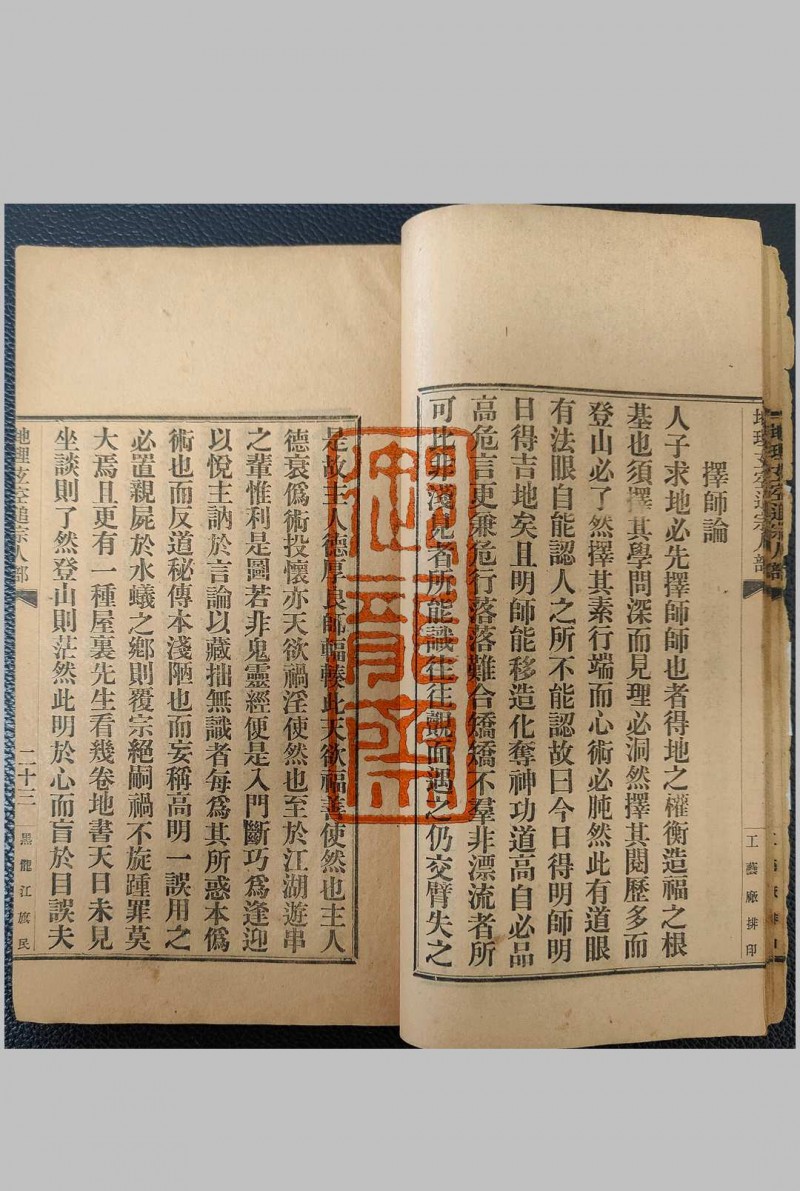 擇師論
人子求地必先擇師師也者得地之權衡造福之根
基也須擇其學問深而見理必洞然擇其閱歷多而
登山必了然擇其素行端而心術必肫然此有道眼
有法眼自能認人之所不能認故曰今日得明師明
日得吉地矣且明師能移造化奪神功道高自必品
高危言更兼危行落落難合矯矯不羣非漂流者所
可比非淺見者所能識往往覿面遇之仍交臂失之
工藝廠排印
是故主人德厚良師輻輳此天欲福善使然也主人
德衰僞術投懷亦天欲禍淫使然也至於江湖遊串
之輩惟利是圖若非鬼靈經便是入門斷巧爲逢迎
以悅主訥於言論以藏拙無識者每爲其所惑本僞
術也而反道秘傳本淺陋也而妄稱高明一誤用之
必置親屍於水蟻之鄉則覆宗絕嗣禍不旋踵罪莫
大焉且更有一種屋裏先生看幾卷地書天日未見
坐談則了然登山則茫然此明於心而盲於目誤夫
地理玄空通宗人部
二十三
黑龍江旗民